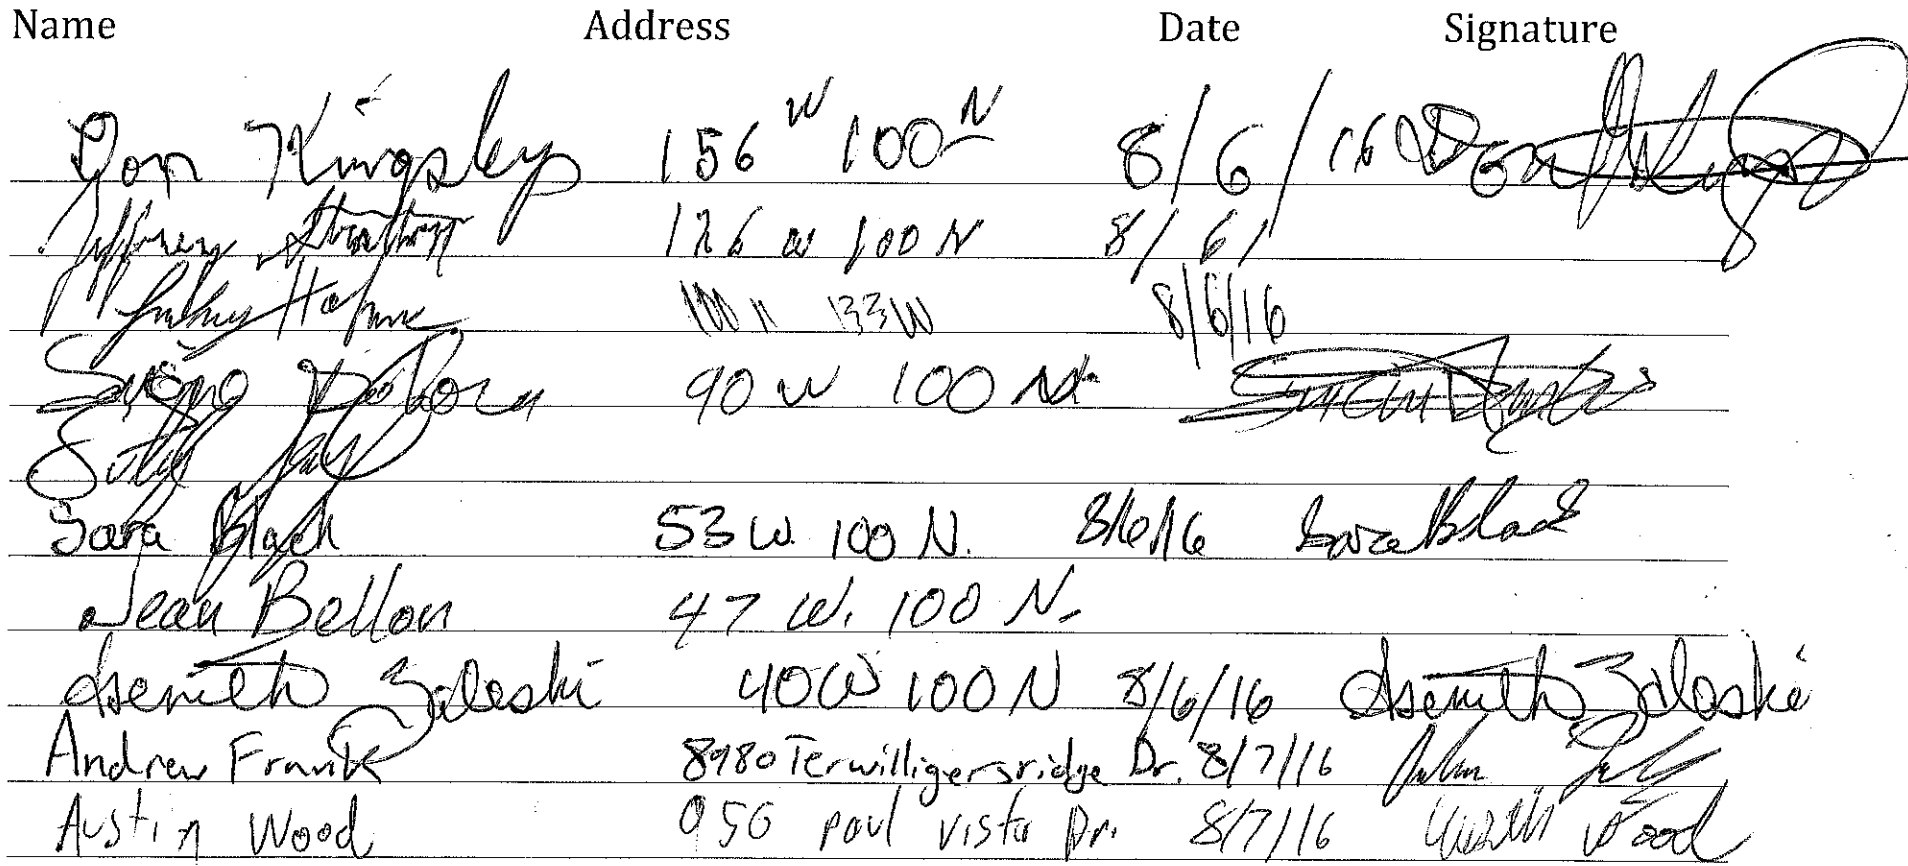 Name Address Date Signature
Don Kingsley 156 W 100 N 8/6/16 Don Kingsley
Jeffrey 126 W 100 N 8/6/
100 N 133 W 8/6/16
90 W 100 N
Sara Black 53 W. 100 N. 8/6/16 Sara Black
Jean Bellon 47 W. 100 N.
Asenith Zaleski 40 W 100 N 8/6/16 Asenith Zaleski
Andrew Frank 8980 Terwilligersridge Dr. 8/7/16
Austin Wood 956 paul vista Dr. 8/7/16 Austin Wood